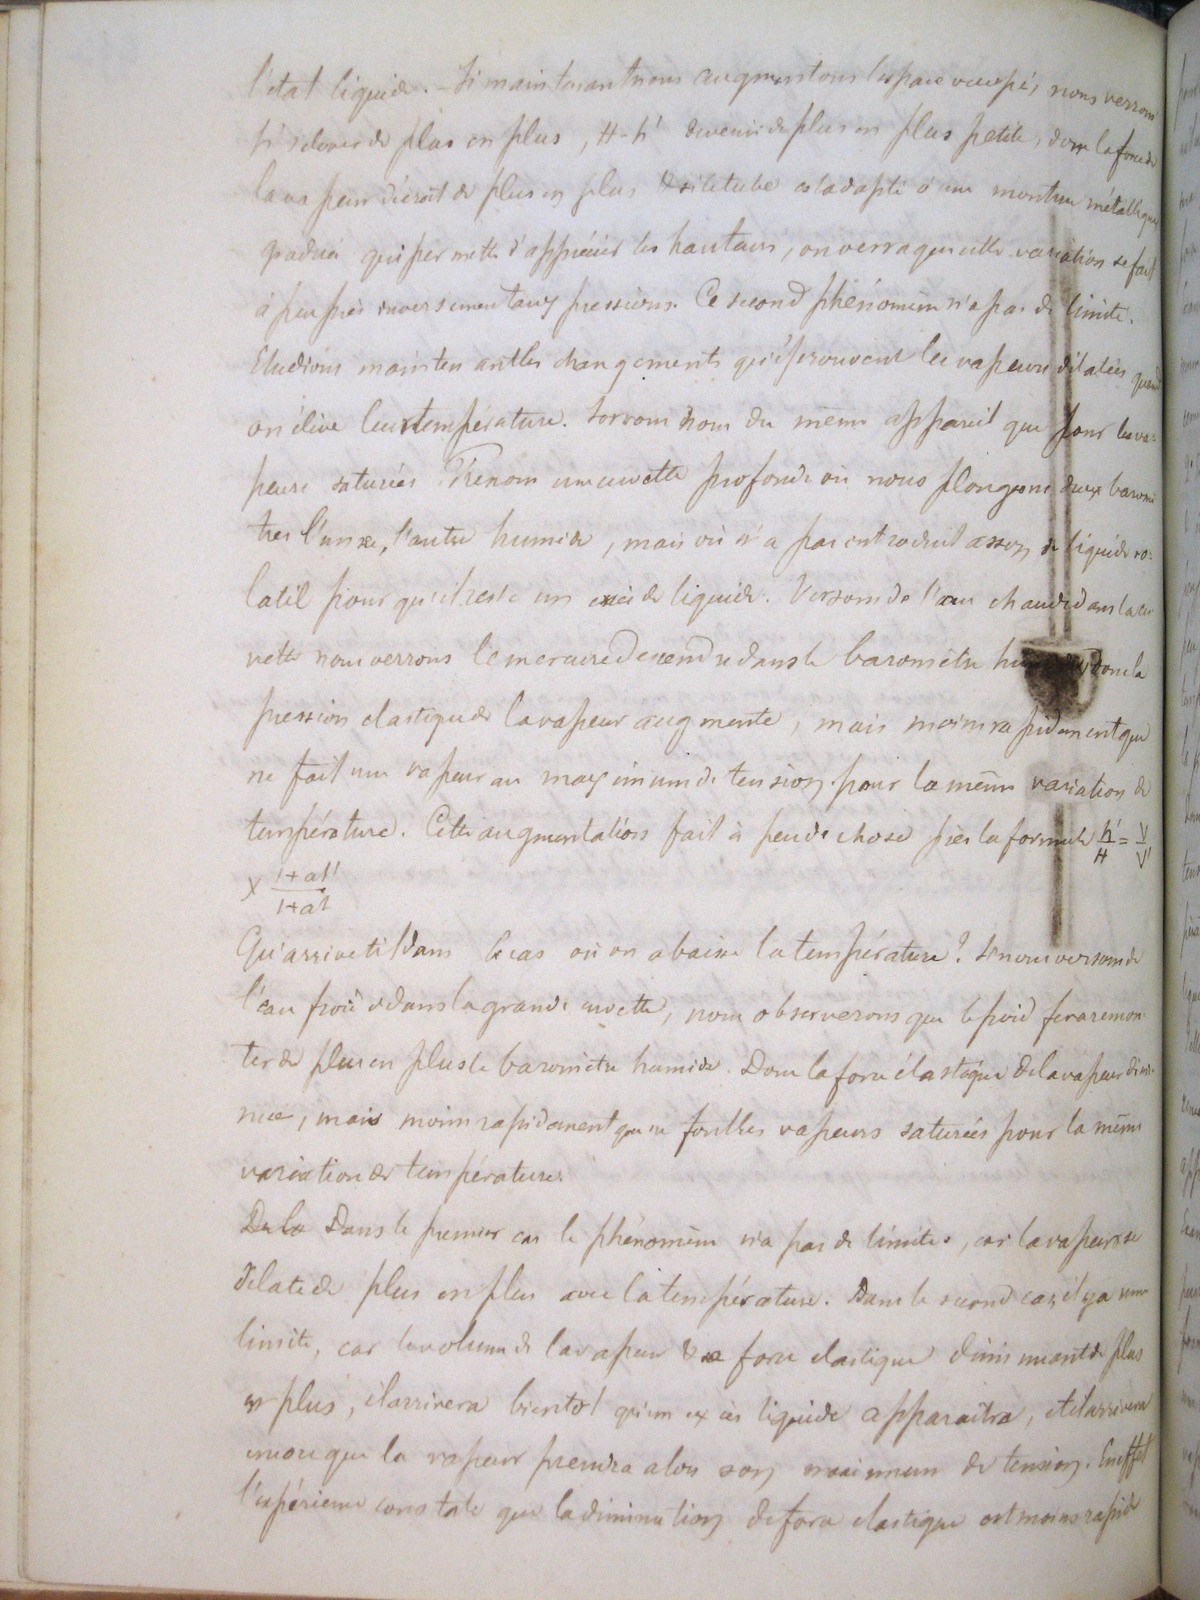 l'état liquide. - Si maintenant nous augmentons l'espace occupé, nous verrons
h' s'élever de plus en plus, H-h' devenir de plus en plus petite, donc la force de
la vapeur décroit de plus en plus & si le tube est adapté à une monture métallique
graduée qui permette d'apprécier les hauteurs, on verra que cette variation se fait
à peu près inversement aux pressions. Ce second phénomène n'a pas de limite.
Etudions maintenant les changements qu'éprouvent les vapeurs dilatées quand
on élève leur température. Servons nous du même appareil que pour les va-
peurs saturées. Prenons une cuvette profonde où nous plongeons deux baromè
tres l'un sec, l'autre humide, mais où n'a pas introduit assez de liquide vo-
latil pour qu'il reste un excès de liquide. Versons de l'eau chaude dans la cu
vette nous verrons le mercure descendre dans le baromètre donc la
pression élastique de la vapeur augmente, mais moins rapidement que
ne fait une vapeur au maximum de tension pour la même variation de
température. Cette augmentation fait à peu de chose près la formule h'/H = V/V'
× 1+at'/1+at
Qu'arrive til dans le cas où on abaisse la température? Si nous versons de
l'eau froide dans la grande cuvette, nous observerons que le froid fera remon-
ter de plus en plus le baromètre humide. Donc la force élastique de la vapeur dimi-
nue, mais moins rapidement que ne font les vapeurs saturées pour la même
variation de température.
De la Dans le premier cas le phénomène n'a pas de limites, car la vapeur se
dilate de plus en plus avec la température. Dans le second cas, il y a une
limite, car le volume de la vapeur & sa force élastique diminuant de plus
en plus, il arrivera bientôt qu'un excès liquide apparaitra, et il arrivera
encore que la vapeur prendra alors son maximum de tension. En effet
l'expérience constate que la diminution de force élastique est moins rapide